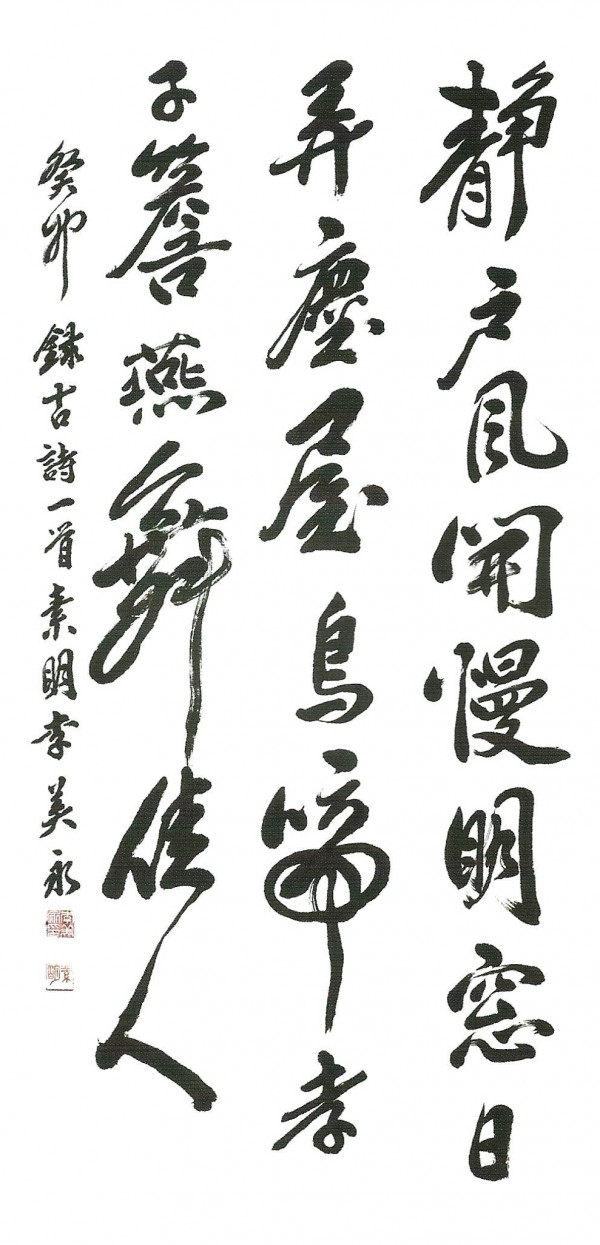 靜戶風開慢明窓日
弄塵屋烏啼孝
子簷燕舞佳人
癸卯 錄古詩一首 素明李美永